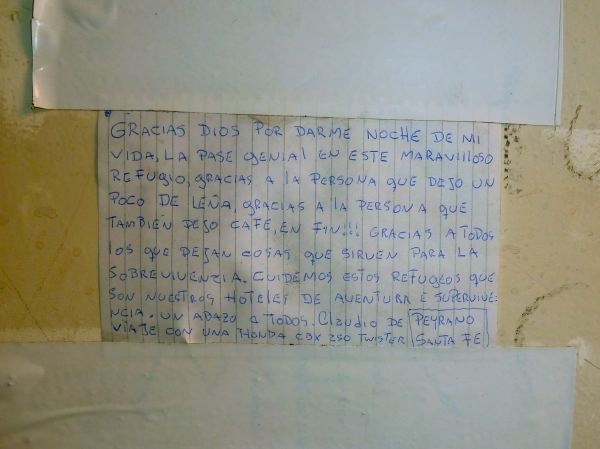 GRACIAS DIOS POR DARME NOCHE DE MI
VIDA, LA PASE GENIAL EN ESTE MARAVILLOSO
REFUGIO, GRACIAS A LA PERSONA QUE DEJO UN
POCO DE LEÑA, GRACIAS A LA PERSONA QUE
TAMBIEN DEJO CAFÉ, EN FIN!!! GRACIAS A TODOS
LOS QUE DEJAN COSAS QUE SIRVEN PARA LA
SOBREVIVENZIA. CUIDEMOS ESTOS REFUGIOS QUE
SON NUESTROS HOTELES DE AVENTURA E SUPERVIVE-
NCIA. UN ABAZO A TODOS. Claudio DE PEYRANO
VIAJE CON UNA HONDA CBX 250 TWISTER SANTA FE